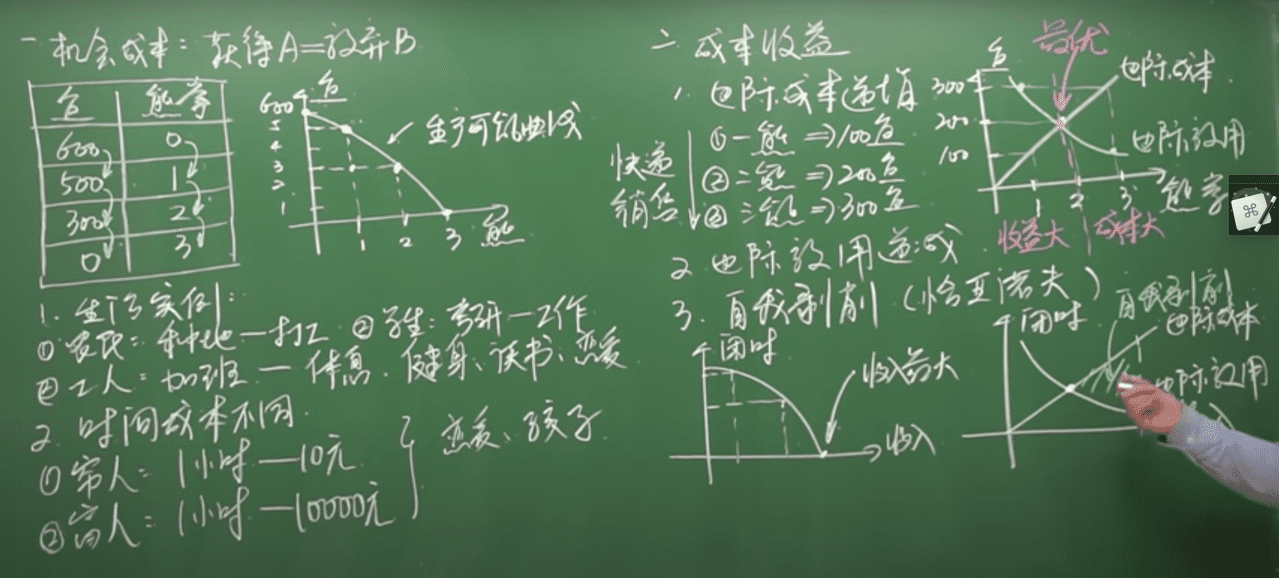 一 机会成本：获得A=放弃B
鱼 熊掌
600 0
500 1
300 2
0 3
鱼
600
5
4
3
2
1
1 2 3 熊
生产可能曲线
1. 生活实例：
① 农民：种地一打工 ② 学生：考研一工作
② 工人：加班一休息、健身、读书、恋爱
2. 时间成本不同
① 穷人：1小时一10元
② 富人：1小时一10000元
恋爱、孩子
二 成本收益
1. 边际成本递增
① 一熊⇒100鱼
② 二熊⇒200鱼
③ 三熊⇒300鱼
快递
销售
2. 边际效用递减
3. 自我剥削（恰亚诺夫）
闲时
收入最大
收入
最优
鱼
300
200
100
边际成本
边际效用
1 2 3 熊掌
收益大 成本大
闲时
自我剥削
边际成本
边际效用